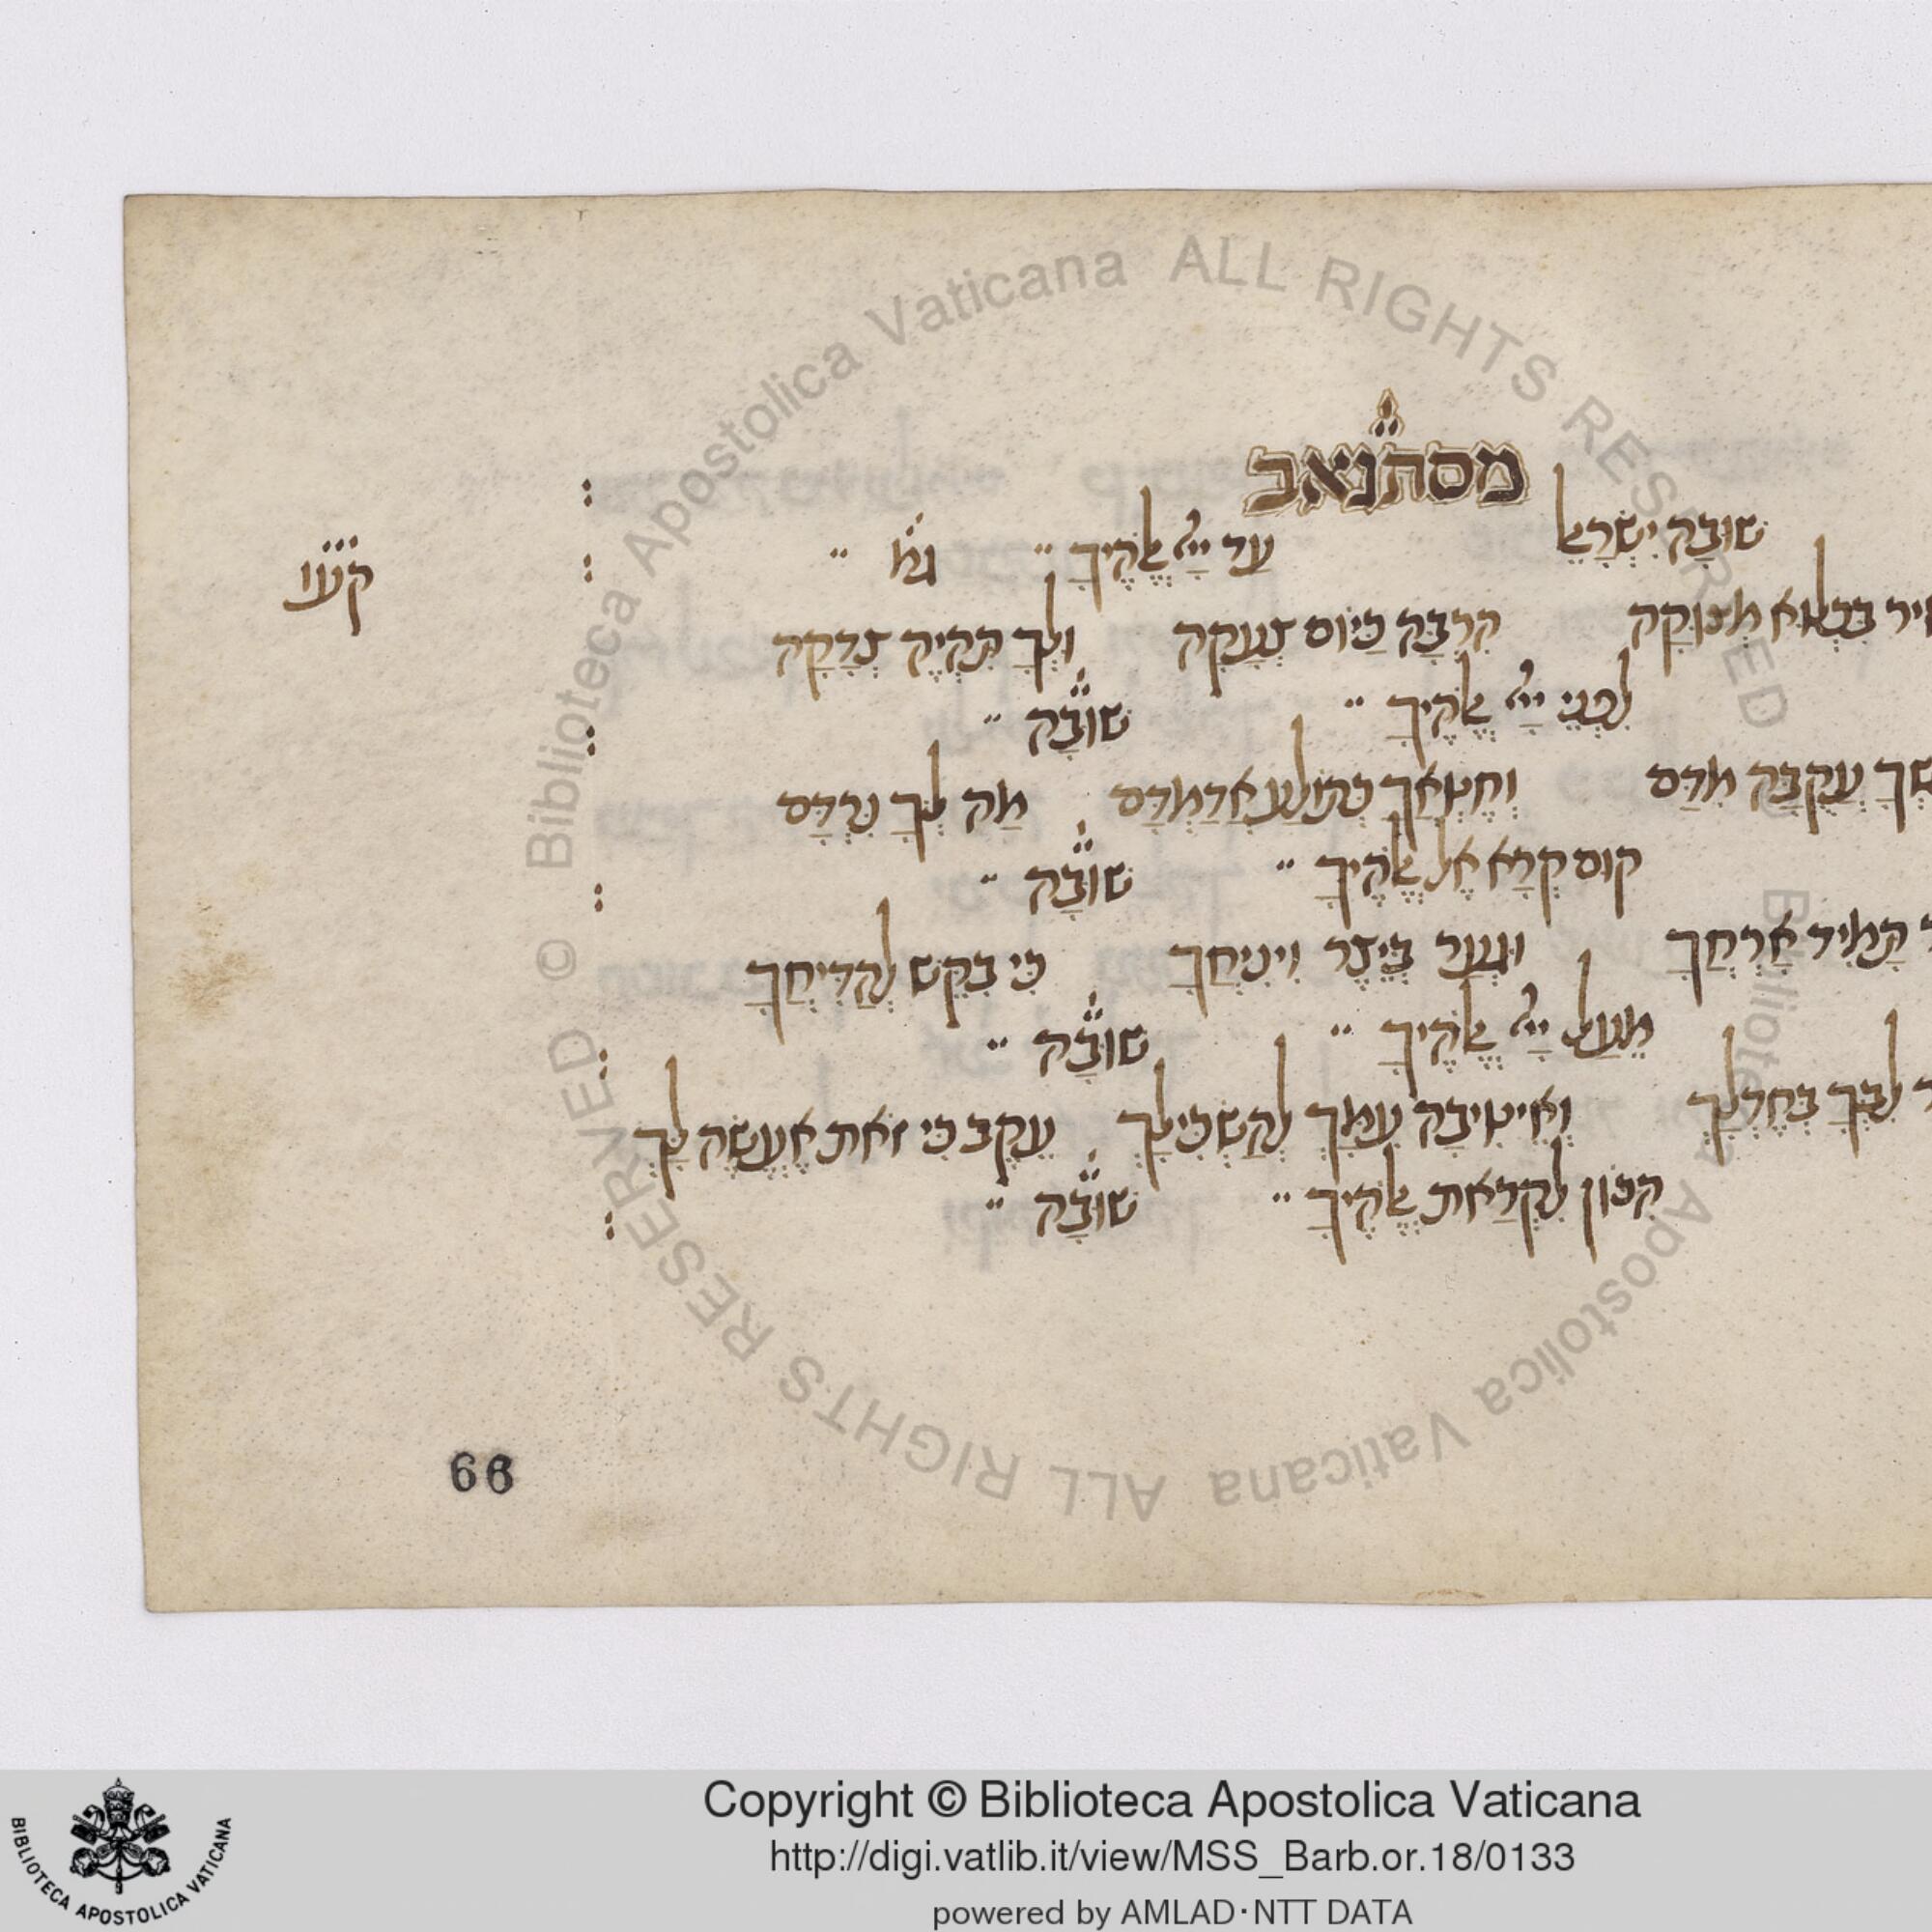 מסתנאב
שׁוּבָה יִשְׂרָאֵל עַד יְיָ אֱלֹהֶיךָ
קעו
קִרְבָה כַּיּוֹם צְעָקָה וּלְךָ תִּהְיֶה צְדָקָה
לִפְנֵי יְיָ אֱלֹהֶיךָ שׁוּבָה
עֲקֻבָּה מִדָּם וְחֶטְאֲךָ כַּתּוֹלָע אֲדַמְדָּם מַה לְּךָ נִרְדָּם
קוּם קְרָא אֶל אֱלֹהֶיךָ שׁוּבָה
תָּמִיד אָרְחֲךָ וּגְעַר בְּיֵצֶר וִינִיחֲךָ כִּי בִקֵּשׁ לְהַדִּיחֲךָ
מֵעַל יְיָ אֱלֹהֶיךָ שׁוּבָה
לִבְּךָ בְּחֶדְלְךָ וְאֵיטִיבָה עִמְּךָ לְהַשְׂכִּילְךָ עֵקֶב כִּי זֹאת אֶעֱשֶׂה לָּךְ
הִכּוֹן לִקְרַאת אֱלֹהֶיךָ שׁוּבָה
66
Biblioteca Apostolica Vaticana ALL RIGHTS RESERVED ©
Biblioteca Apostolica Vaticana ALL RIGHTS RESERVED ©
BIBLIOTECA APOSTOLICA VATICANA
Copyright © Biblioteca Apostolica Vaticana
http://digi.vatlib.it/view/MSS_Barb.or.18/0133
powered by AMLAD·NTT DATA